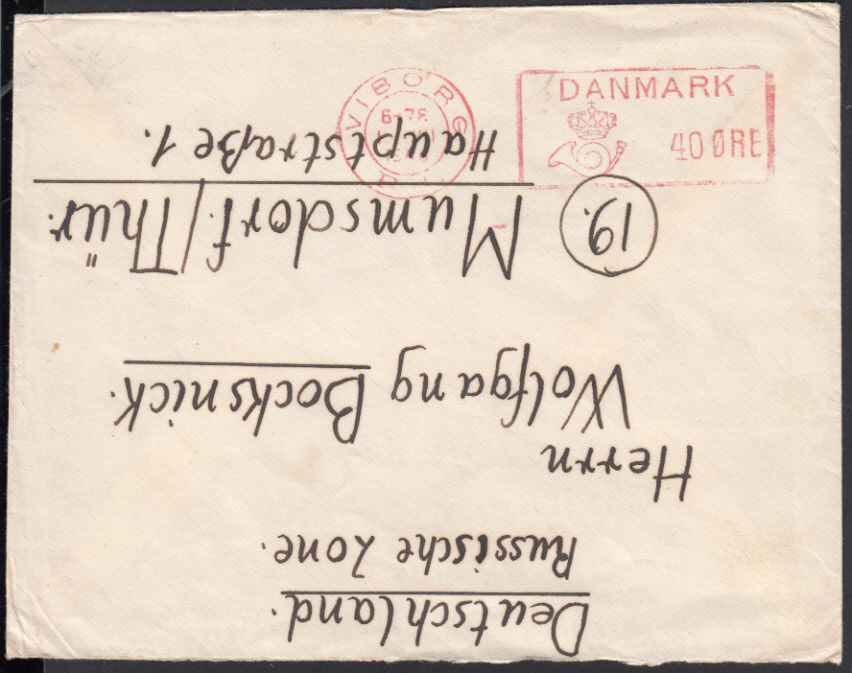 Deutschland.
Russische Zone.
Herrn
Wolfgang Bocksnick.
19. Mumsdorf/Thür.
Hauptstraße 1.
VIBORG
DANMARK
40 ØRE